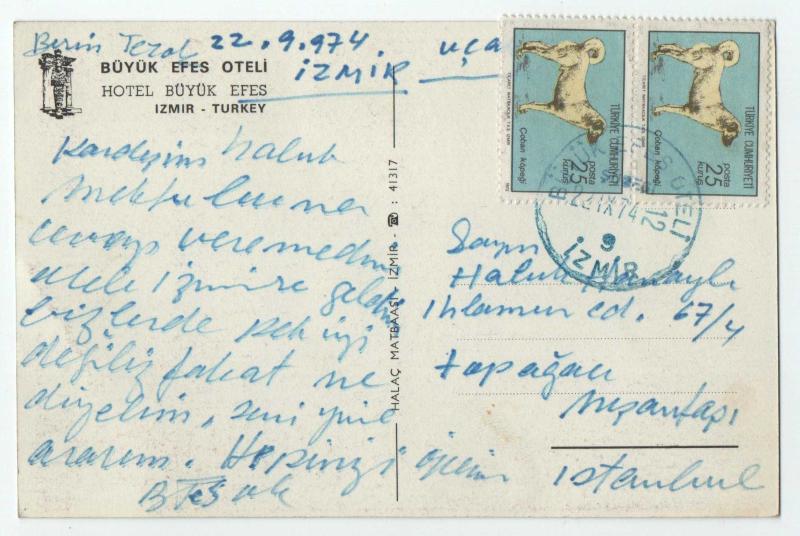 Berin Tezol 22.9.974. uça
İZMİR
BÜYÜK EFES OTELİ
HOTEL BÜYÜK EFES
IZMIR - TURKEY
Kardeşim Haluk
mektubuna
cevap veremedim
İzmire geldim
bizlerde pek iyi
değiliz fakat ne
diyelim, seni yine
ararım. Hepinizi öperim
HALAÇ MATBAASI - İZMİR - ☎ : 41317
Sayın
Haluk
Ihlamur cd. 67/4
Topağacı
Nişantaşı
Istanbul
TÜRKİYE CUMHURİYETİ
posta
25
kuruş
Çoban köpeği
TÜRKİYE CUMHURİYETİ
posta
25
kuruş
Çoban köpeği
S OTELİ
22 IX 74 12
9
İZMİR